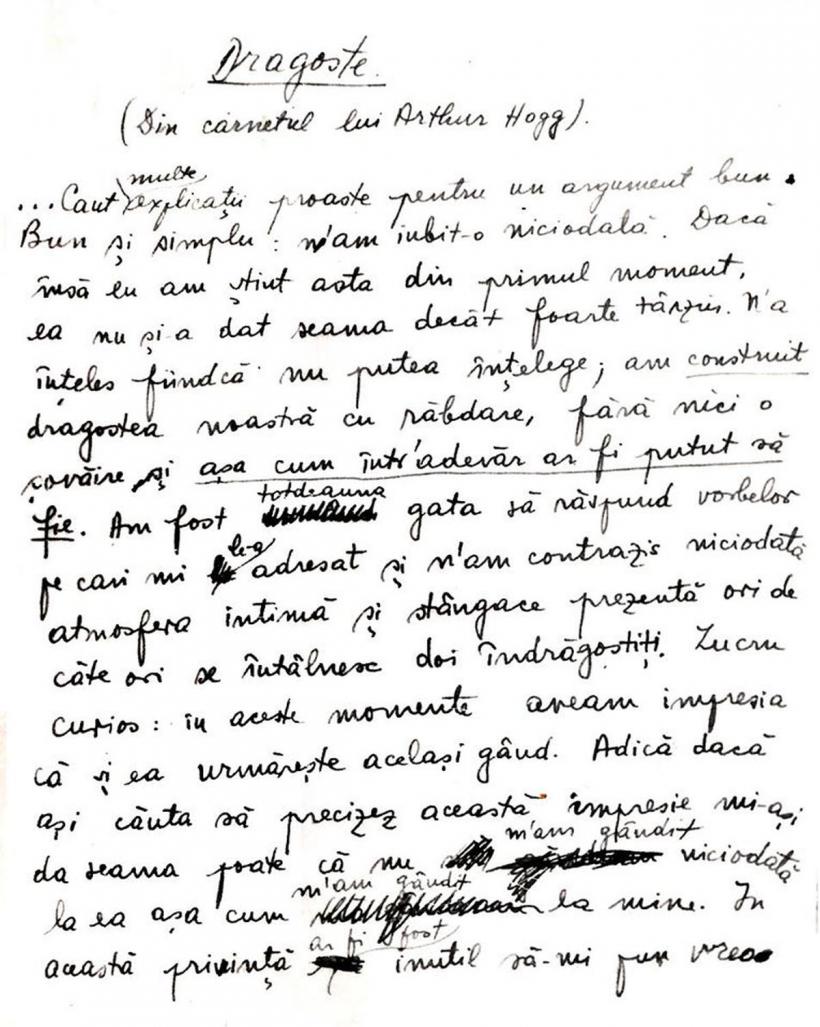 Dragoste.
(Din carnetul lui Arthur Hogg).
multe
...Caut explicații proaste pentru un argument bun.
Bun și simplu: n'am iubit-o niciodată. Dacă
însă eu am știut asta din primul moment,
ea nu și-a dat seama decât foarte târziu. N'a
înțeles fiindcă nu putea înțelege; am construit
dragostea noastră cu răbdare, fără nici o
șovăire și așa cum într'adevăr ar fi putut să
fie. Am fost totdeauna gata să răspund vorbelor
pe cari mi le-a adresat și n'am contrazis niciodată
atmosfera intimă și stângace prezentă ori de
câte ori se întâlnesc doi îndrăgostiți. Lucru
curios: în aceste momente aveam impresia
că și ea urmărește același gând. Adică dacă
ași căuta să precizez această impresie mi-ași
da seama poate că nu m'am gândit niciodată
la ea așa cum m'am gândit la mine. In
această privință ar fi fost inutil să-mi pun vreo